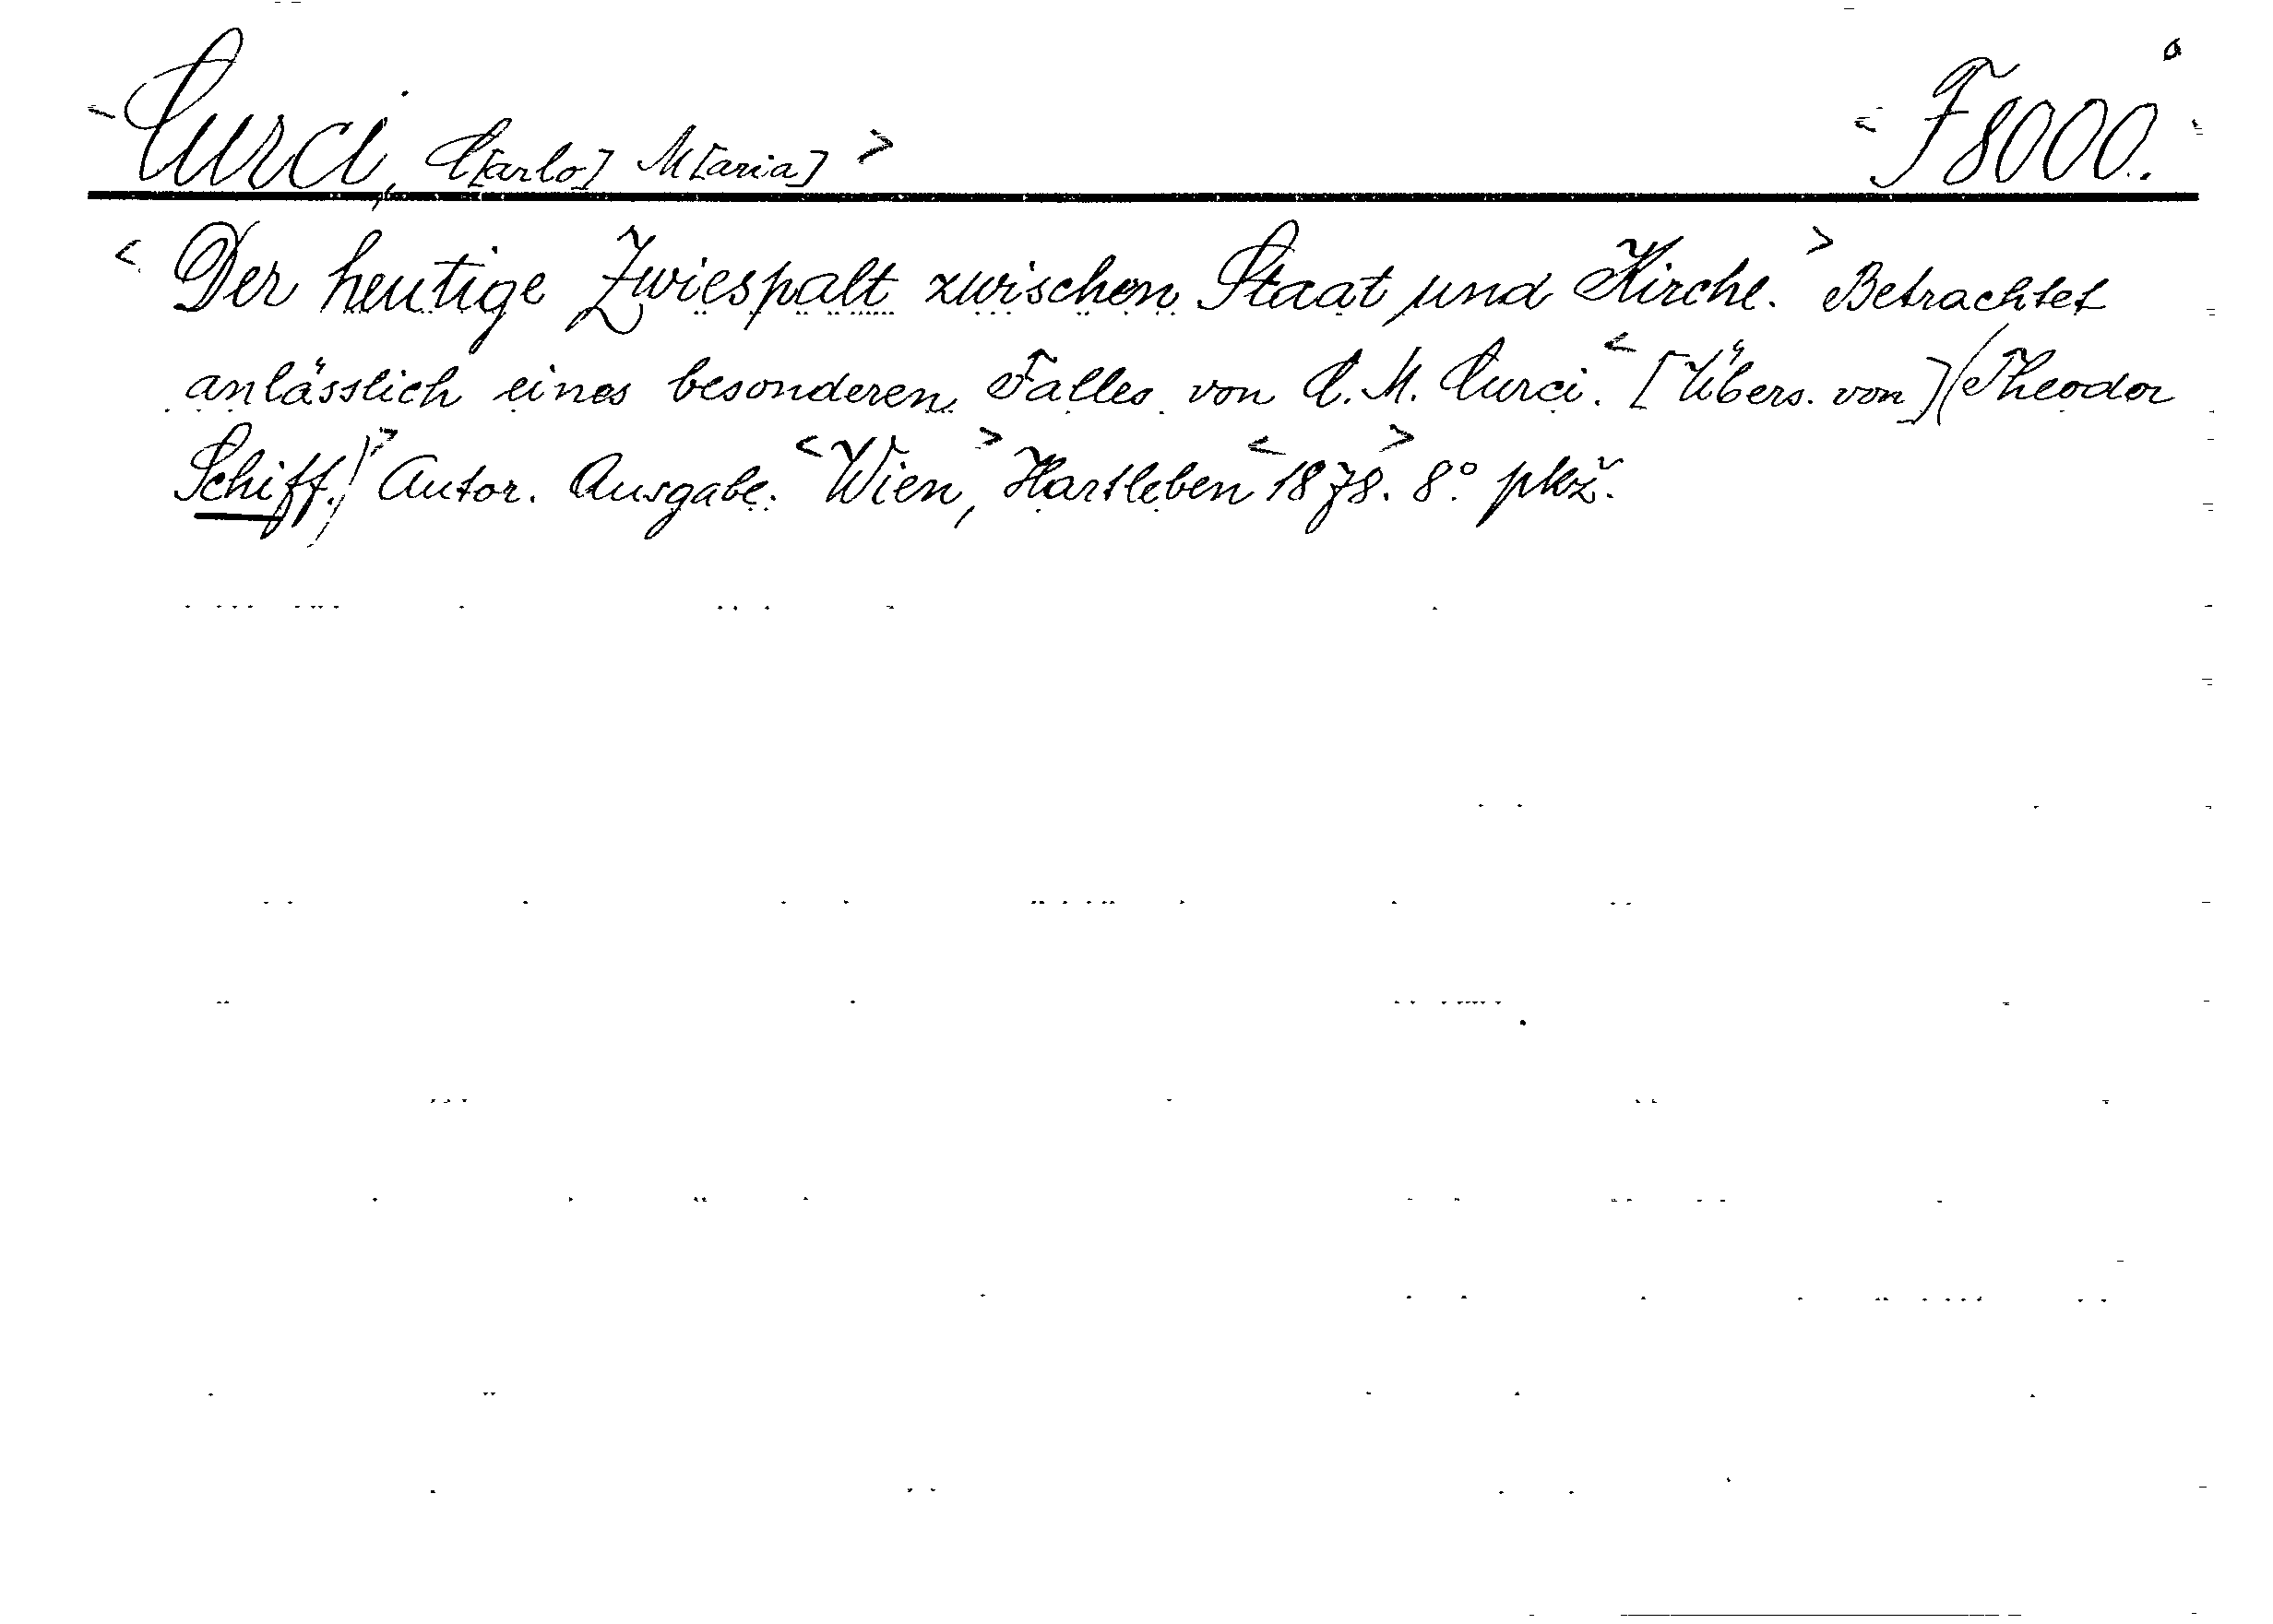 <Curci, C[arlo] M[aria]> <F 8000.>
<Der heutige Zwiespalt zwischen Staat und Kirche.> Betrachtet
anlässlich eines besonderen Falles von C. M. Curci. <[Übers. von] (Theodor
Schiff.)> Autor. Ausgabe. <Wien,> Hartleben <1878.> 8° pkž.